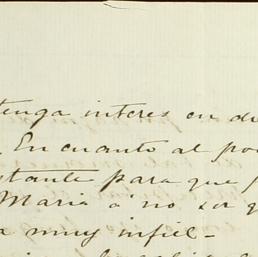 tenga interes en d
. En cuanto al po
stante para que
Maria á no ser q
a muy infiel-